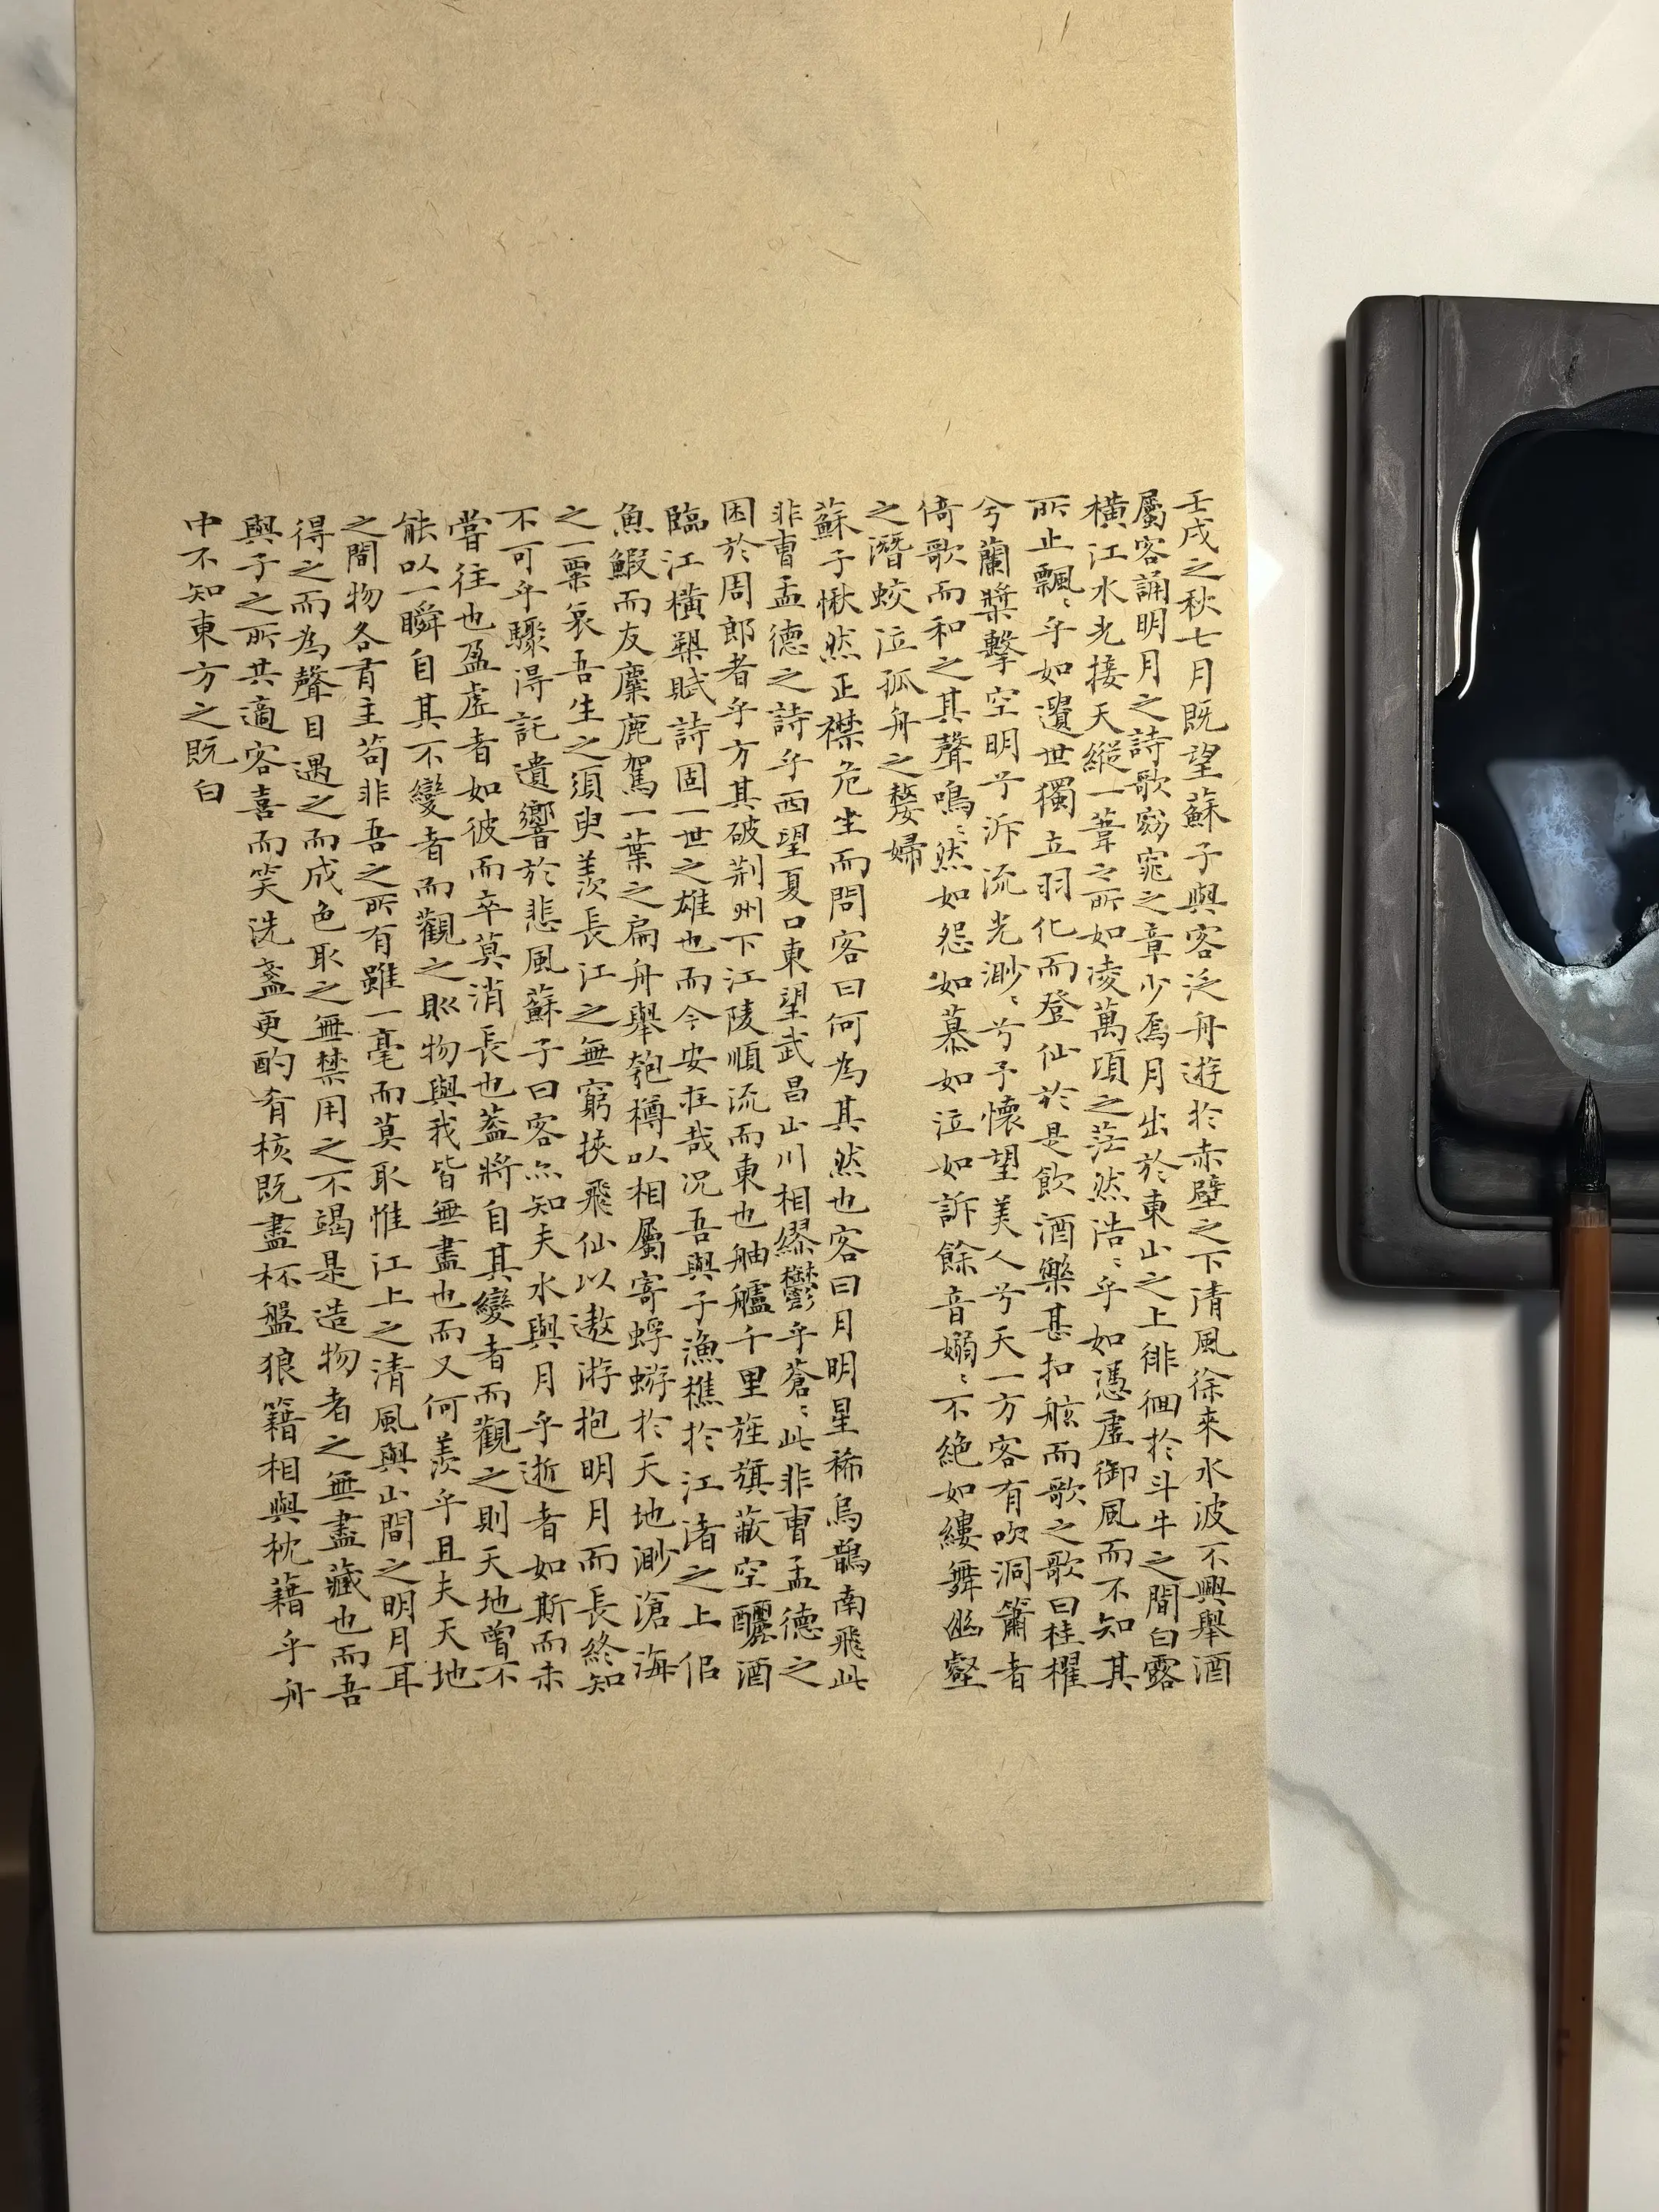 壬戌之秋七月既望蘇子與客泛舟遊於赤壁之下清風徐來水波不興舉酒
屬客誦明月之詩歌窈窕之章少焉月出於東山之上徘徊於斗牛之間白露
橫江水光接天縱一葦之所如凌萬頃之茫然浩〻乎如憑虛御風而不知其
所止飄〻乎如遺世獨立羽化而登仙於是飲酒樂甚扣舷而歌之歌曰桂櫂
兮蘭槳擊空明兮泝流光渺〻兮予懷望美人兮天一方客有吹洞簫者
倚歌而和之其聲嗚〻然如怨如慕如泣如訴餘音嫋〻不絕如縷舞幽壑
之潛蛟泣孤舟之嫠婦
蘇子愀然正襟危坐而問客曰何為其然也客曰月明星稀烏鵲南飛此
非曹孟德之詩乎西望夏口東望武昌山川相繆鬱乎蒼〻此非曹孟德之
困於周郎者乎方其破荊州下江陵順流而東也舳艫千里旌旗蔽空釃酒
臨江橫槊賦詩固一世之雄也而今安在哉況吾與子漁樵於江渚之上侶
魚鰕而友麋鹿駕一葉之扁舟舉匏樽以相屬寄蜉蝣於天地渺滄海
之一粟哀吾生之須臾羨長江之無窮挾飛仙以遨游抱明月而長終知
不可乎驟得託遺響於悲風蘇子曰客亦知夫水與月乎逝者如斯而未
嘗往也盈虛者如彼而卒莫消長也蓋將自其變者而觀之則天地曾不
能以一瞬自其不變者而觀之則物與我皆無盡也而又何羨乎且夫天地
之間物各有主苟非吾之所有雖一毫而莫取惟江上之清風與山間之明月耳
得之而為聲目遇之而成色取之無禁用之不竭是造物者之無盡藏也而吾
與子之所共適客喜而笑洗盞更酌肴核既盡杯盤狼籍相與枕藉乎舟
中不知東方之既白